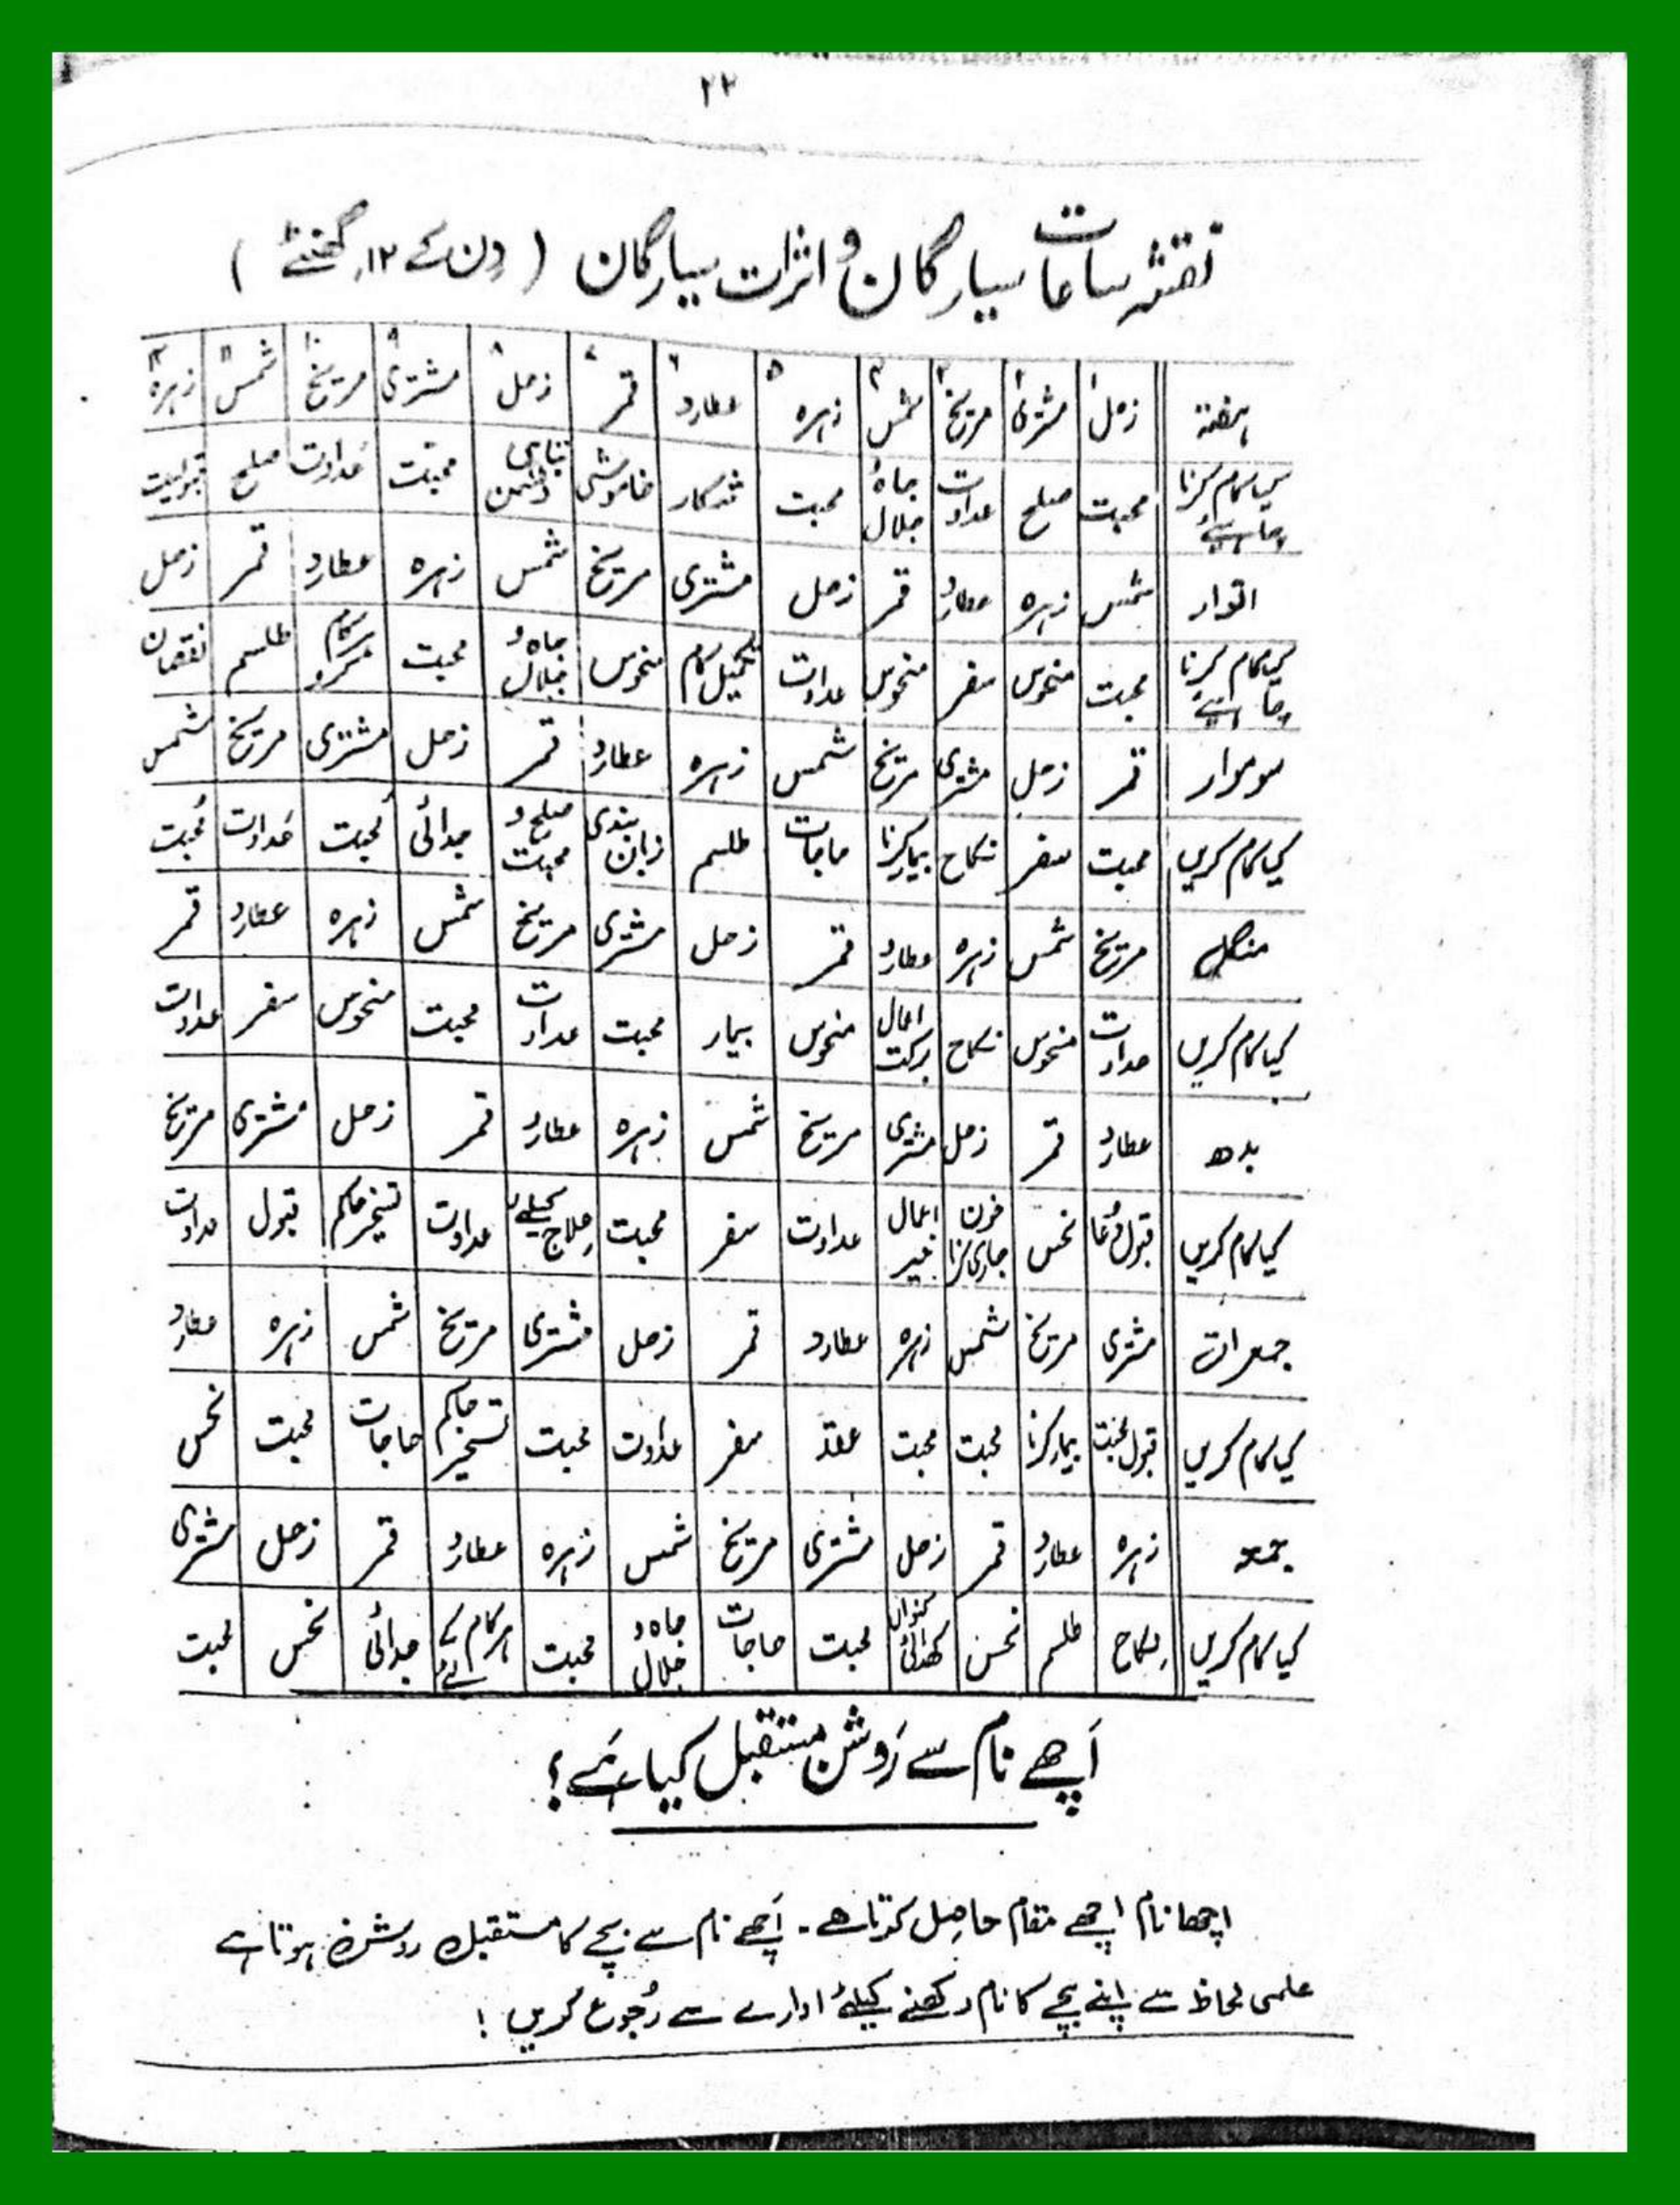 ۲۲
نقشہ ساعات سیارگان و اثرات سیارگان ( دِن کے ۱۲ گھنٹے )
۱ ۲ ۳ ۴ ۵ ۶ ۷ ۸ ۹ ۱۰ ۱۱ ۱۲
ہفتہ زحل مشتری مریخ شمس زہرہ عطارد قمر زحل مشتری مریخ شمس زہرہ
کیا کام کرنا چاہیئے محبت صلح عداوت جاہ جلال محبت شکار خاموشی تباہی دشمن محبت عداوت صلح قبولیت
اتوار شمس زہرہ عطارد قمر زحل مشتری مریخ شمس زہرہ عطارد قمر زحل
کیا کام کرنا چاہیئے محبت منحوس سفر منحوس عداوت تکمیل کام منحوس جاہ و جلال محبت ہر کام کرو طلسم نقصان
سوموار قمر زحل مشتری مریخ شمس زہرہ عطارد قمر زحل مشتری مریخ شمس
کیا کام کریں محبت سفر نکاح بیمار کرنا حاجات طلسم زبان بندی صلح و محبت جدائی محبت عداوت محبت
منگل مریخ شمس زہرہ عطارد قمر زحل مشتری مریخ شمس زہرہ عطارد قمر
کیا کام کریں عداوت منحوس نکاح اعمال برکت منحوس بیمار محبت عداوت محبت منحوس سفر عداوت
بدھ عطارد قمر زحل مشتری مریخ شمس زہرہ عطارد قمر زحل مشتری مریخ
کیا کام کریں قبول دُعا نحس خون جاری کرنا اعمال خیر عداوت سفر محبت علاج کیلئے عداوت تسخیر حاکم قبول عداوت
جمعرات مشتری مریخ شمس زہرہ عطارد قمر زحل مشتری مریخ شمس زہرہ عطارد
کیا کام کریں قبول محبت بیمار کرنا محبت محبت عقد سفر عداوت محبت تسخیر حاکم حاجات محبت نحس
جمعہ زہرہ عطارد قمر زحل مشتری مریخ شمس زہرہ عطارد قمر زحل مشتری
کیا کام کریں نکاح طلسم نحس کنواں کھدائی محبت حاجات جاہ و جلال محبت ہر کام کے لئے جدائی نحس محبت
اَچھے نام سے رَوشن مستقبل کیا ہَے؟
اچھا نام اچھے مقام حاصِل کرتا ہے۔ اَچھے نام سے بچے کا مستقبل روشن ہوتا ہے
علمی لحاظ سے اپنے بچے کا نام رکھنے کیلئے ادارے سے رُجوع کریں !